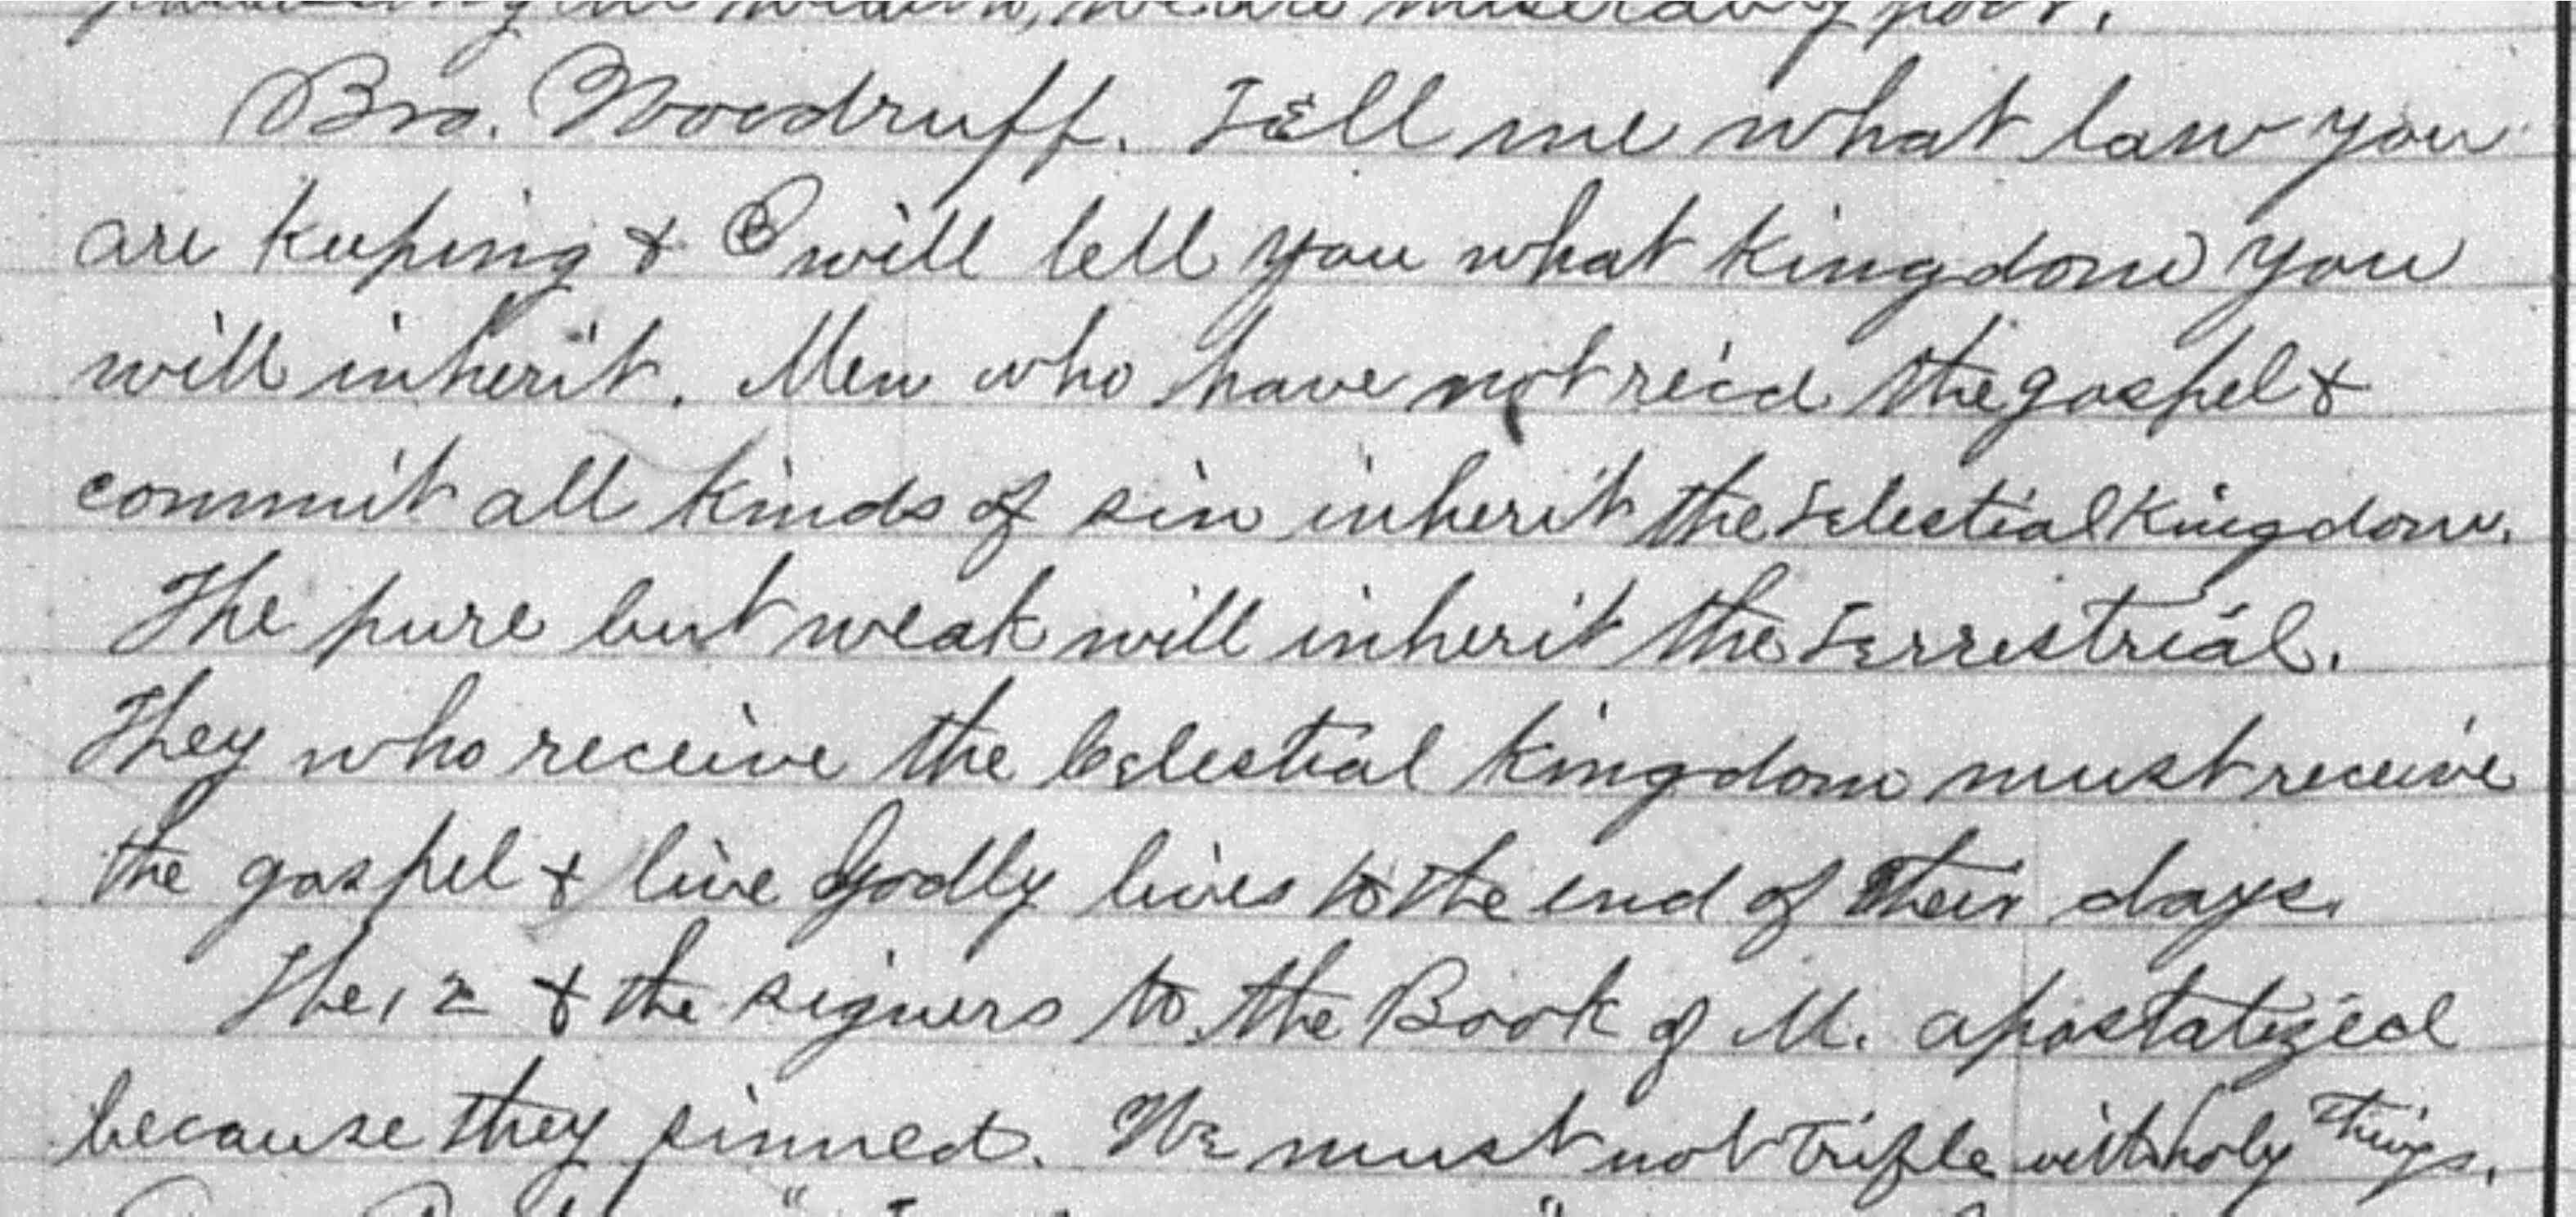 miserably poor.
Bro. Woodruff. Tell me what law you
are keeping & I will tell you what kingdom you
will inherit. Men who have not rec'd the gospel &
commit all kinds of sin inherit the Telestial Kingdom.
The pure but weak will inherit the Terrestrial.
They who receive the Celestial Kingdom must receive
the gospel & live Godly lives to the end of their days.
The 12 & the signers to the Book of M. apostatized
because they sinned. We must not trifle with holy things.